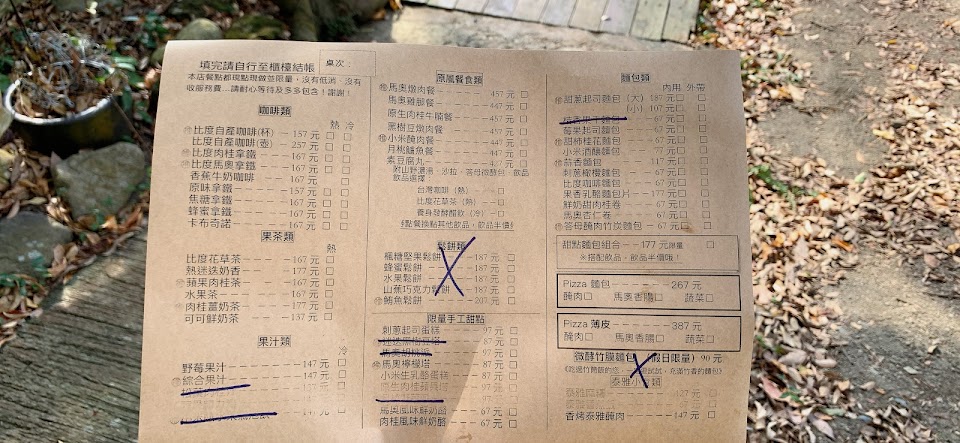 填完請自行至櫃檯結帳
桌次:
本店餐點都現點現做並限量，沒有低消、沒有
收服務費...請耐心等待及多多包含！謝謝！
咖啡類
熱 冷
比度自產咖啡(杯) 157元 □ □
比度自產咖啡(壺) 257元 □ □
比度肉桂拿鐵 167元 □ □
比度馬奧拿鐵 167元 □ □
香蕉牛奶咖啡 167元 □
原味拿鐵 157元 □ □
焦糖拿鐵 167元 □ □
蜂蜜拿鐵 167元 □ □
卡布奇諾 167元 □ □
果茶類
熱
比度花草茶 167元 □
熱迷迭奶香 177元 □
蘋果肉桂茶 167元 □
水果茶 167元 □
肉桂薑奶茶 177元 □
可可鮮奶茶 137元 □
果汁類
冷
野莓果汁 147元 □
綜合果汁 147元 □
原風餐食類
馬奧燉肉餐 457元 □
馬奧雞腿餐 447元 □
原生肉桂牛腩餐 457元 □
黑樹豆燉肉餐 447元 □
小米醃肉餐 447元 □
月桃鯛魚餐 447元 □
素豆腐丸 457元 □
附山野濃湯、沙拉、答母微酵包、飲品
飲品選擇
台灣咖啡（熱） □
比度花草茶（熱） □
養身發酵醋飲（冷） □
點餐換點其他飲品，飲品半價
鬆餅類
楓糖堅果鬆餅 187元 □
蜂蜜鬆餅 187元 □
水果鬆餅 187元 □
山蕉巧克力鬆餅 187元 □
鮪魚鬆餅 207元 □
限量手工甜點
刺蔥起司蛋糕 97元 □
87元 □
97元 □
馬奧檸檬塔 87元 □
小米生乳酪蛋糕 87元 □
馬奧風味鮮奶酪 67元 □
肉桂風味鮮奶酪 67元 □
麵包類
內用 外帶
甜蔥起司麵包（大）187元 □ □
（小）107元 □ □
莓果起司麵包 67元 □ □
甜柿桂花麵包 67元 □ □
小米酒釀麵包 77元 □ □
蒜香麵包 117元 □ □
刺蔥橄欖麵包 67元 □ □
比度咖啡麵包 67元 □ □
果香乳酪麵包片 117元 □ □
鮮奶甜肉桂卷 67元 □ □
馬奧杏仁卷 67元 □ □
答母醃肉竹炭麵包 67元 □ □
甜點麵包組合 177元限量 □
※搭配飲品，飲品半價哦！
Pizza 麵包 267元
醃肉□ 馬奧香腸□ 蔬菜□
Pizza 薄皮 387元
醃肉□ 馬奧香腸□ 蔬菜□
微酵竹膜麵包（假日限量）90元
泰雅小類
香烤泰雅醃肉 147元 □